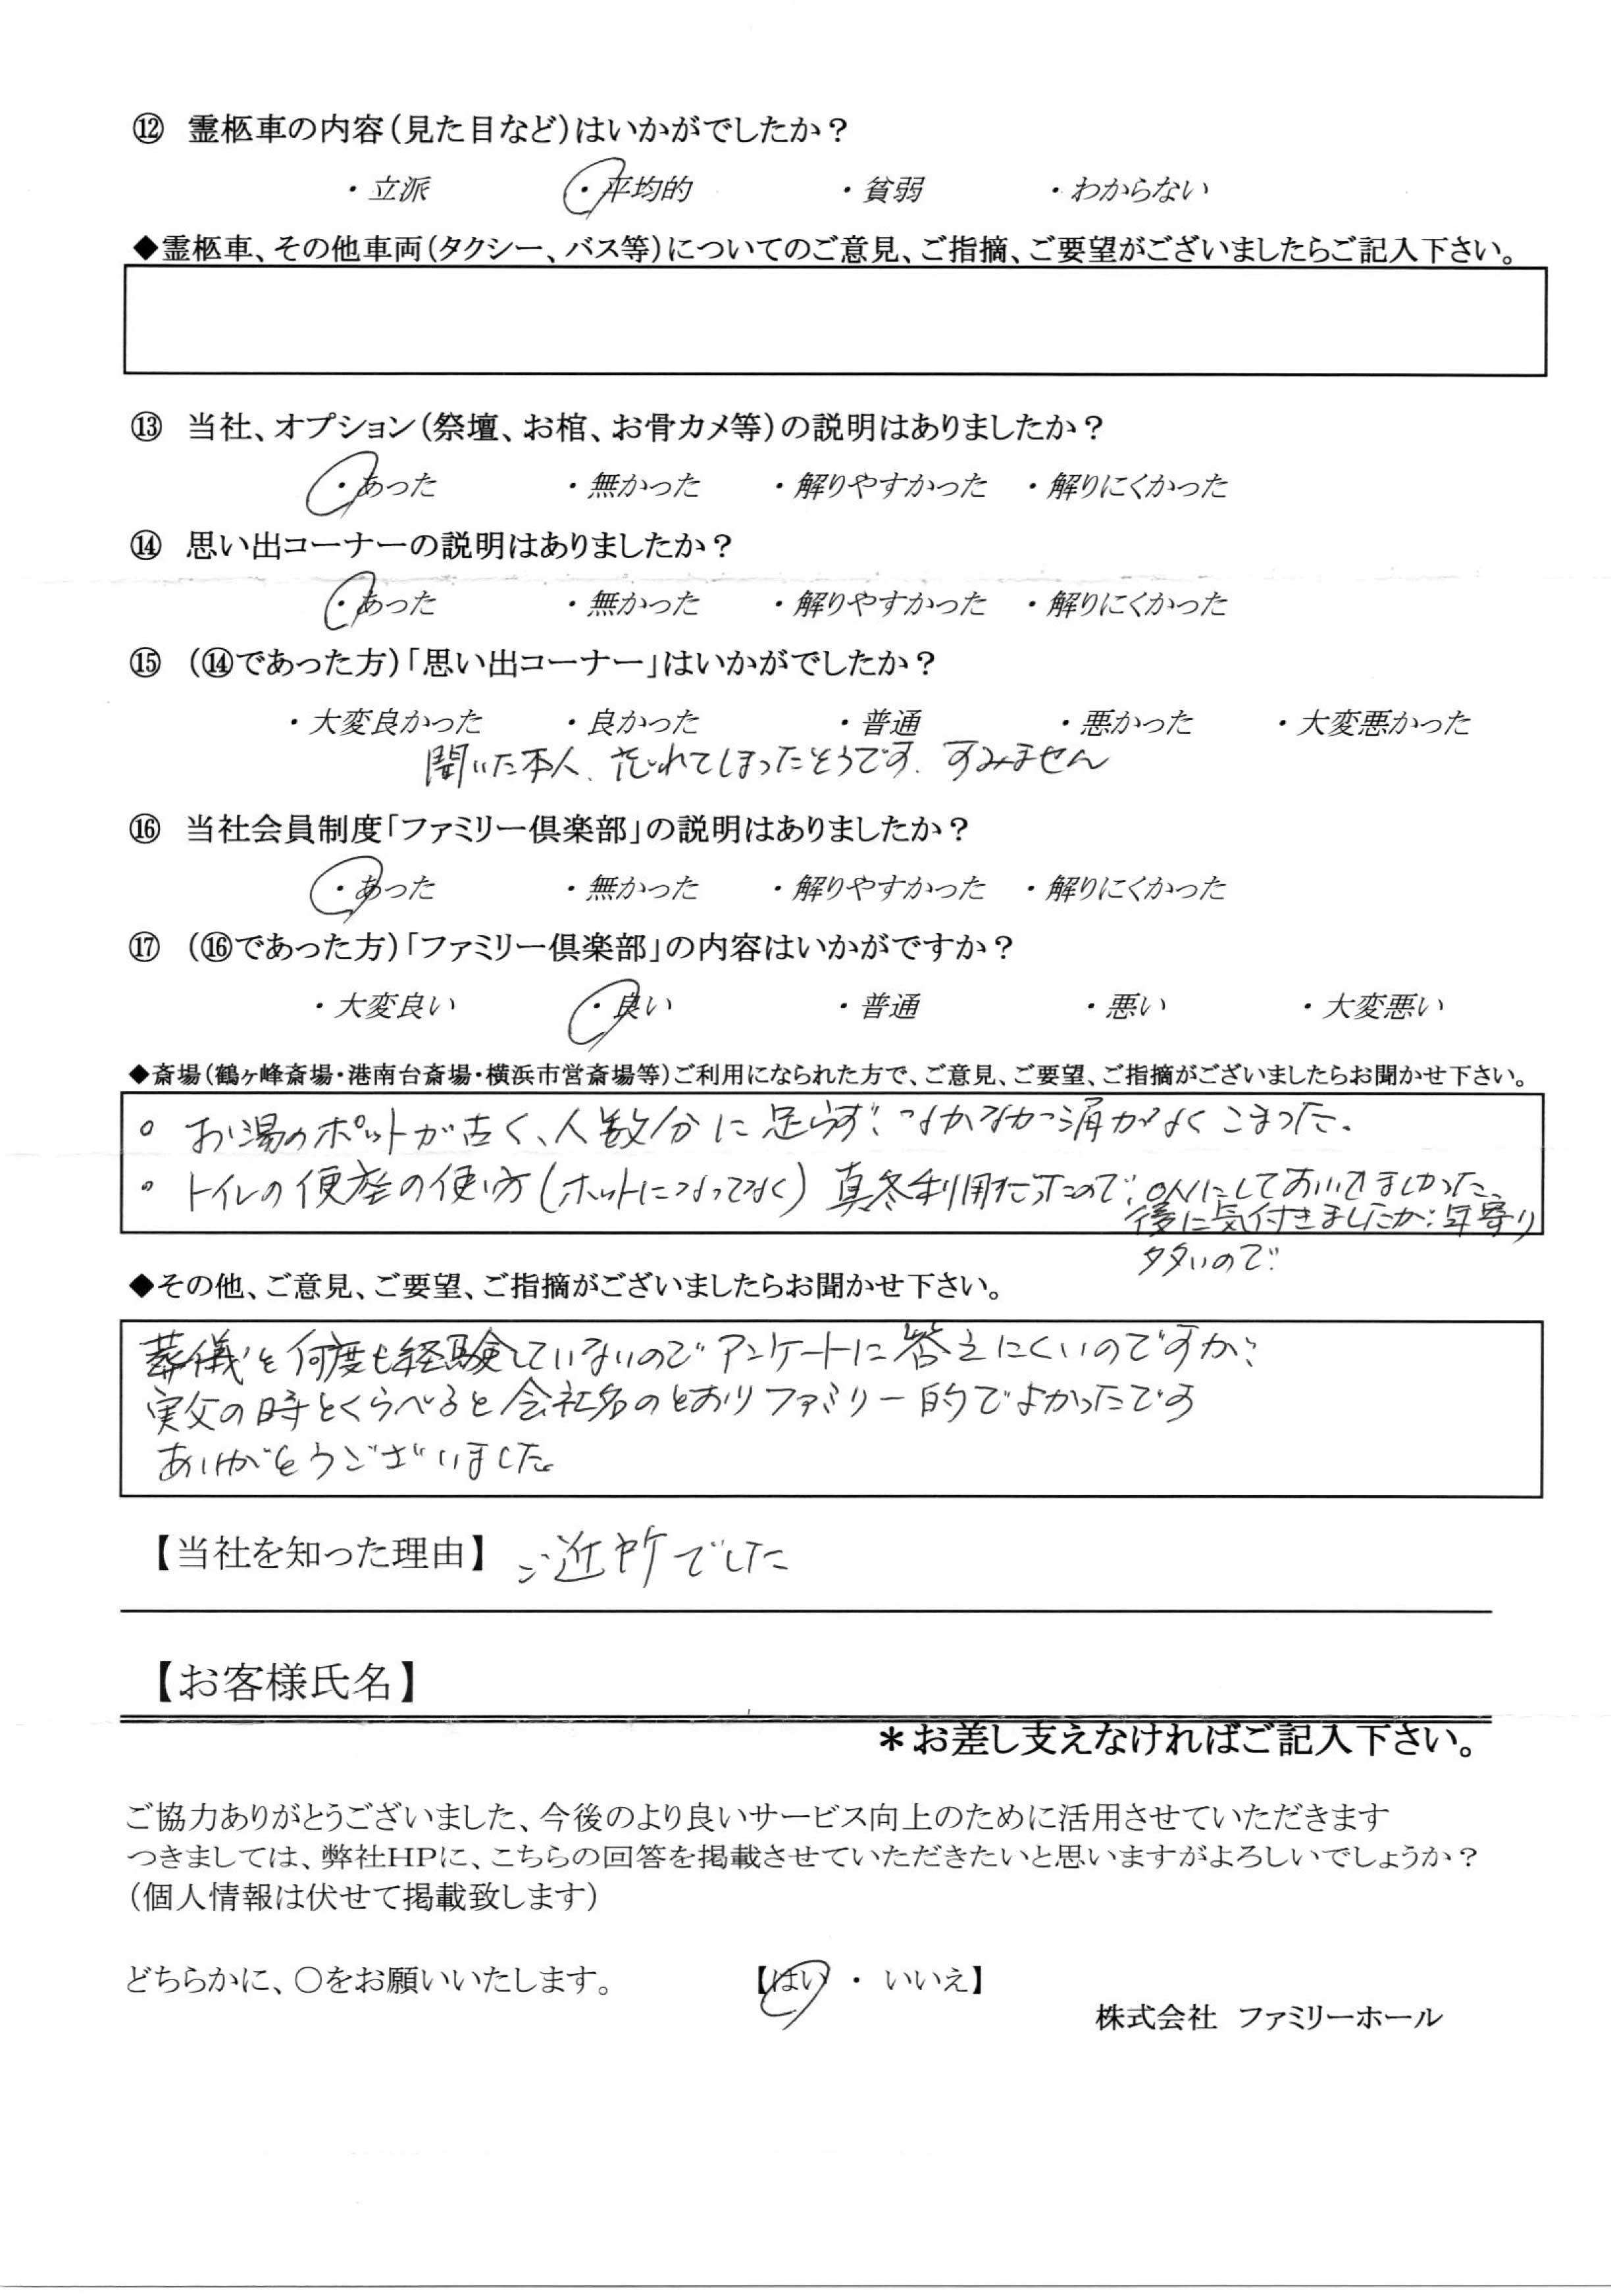 ⑫ 霊柩車の内容（見た目など）はいかがでしたか？
・立派 ・平均的 ・貧弱 ・わからない
◆霊柩車、その他車両（タクシー、バス等）についてのご意見、ご指摘、ご要望がございましたらご記入下さい。
⑬ 当社、オプション（祭壇、お棺、お骨カメ等）の説明はありましたか？
・あった ・無かった ・解りやすかった ・解りにくかった
⑭ 思い出コーナーの説明はありましたか？
・あった ・無かった ・解りやすかった ・解りにくかった
⑮ （⑭であった方）「思い出コーナー」はいかがでしたか？
・大変良かった ・良かった ・普通 ・悪かった ・大変悪かった
聞いた本人、忘れてしまったそうです、すみません
⑯ 当社会員制度「ファミリー倶楽部」の説明はありましたか？
・あった ・無かった ・解りやすかった ・解りにくかった
⑰ （⑯であった方）「ファミリー倶楽部」の内容はいかがですか？
・大変良い ・良い ・普通 ・悪い ・大変悪い
◆斎場（鶴ヶ峰斎場・港南台斎場・横浜市営斎場等）ご利用になられた方で、ご意見、ご要望、ご指摘がございましたらお聞かせ下さい。
○ お湯のポットが古く、人数分に足らず、なかなか沸かなくこまった。
○ トイレの便座の使い方（ホットになってなく）真冬利用だったので、ONにしておいて
後に気付きましたが、年寄り
多いので
◆その他、ご意見、ご要望、ご指摘がございましたらお聞かせ下さい。
葬儀を何度も経験していないのでアンケートに答えにくいのですが、
実父の時とくらべると会社名のとおりファミリー的でよかったです
ありがとうございました。
【当社を知った理由】 ご近所でした
【お客様氏名】
＊お差し支えなければご記入下さい。
ご協力ありがとうございました、今後のより良いサービス向上のために活用させていただきます
つきましては、弊社HPに、こちらの回答を掲載させていただきたいと思いますがよろしいでしょうか？
（個人情報は伏せて掲載致します）
どちらかに、○をお願いいたします。 【はい ・ いいえ】
株式会社 ファミリーホール